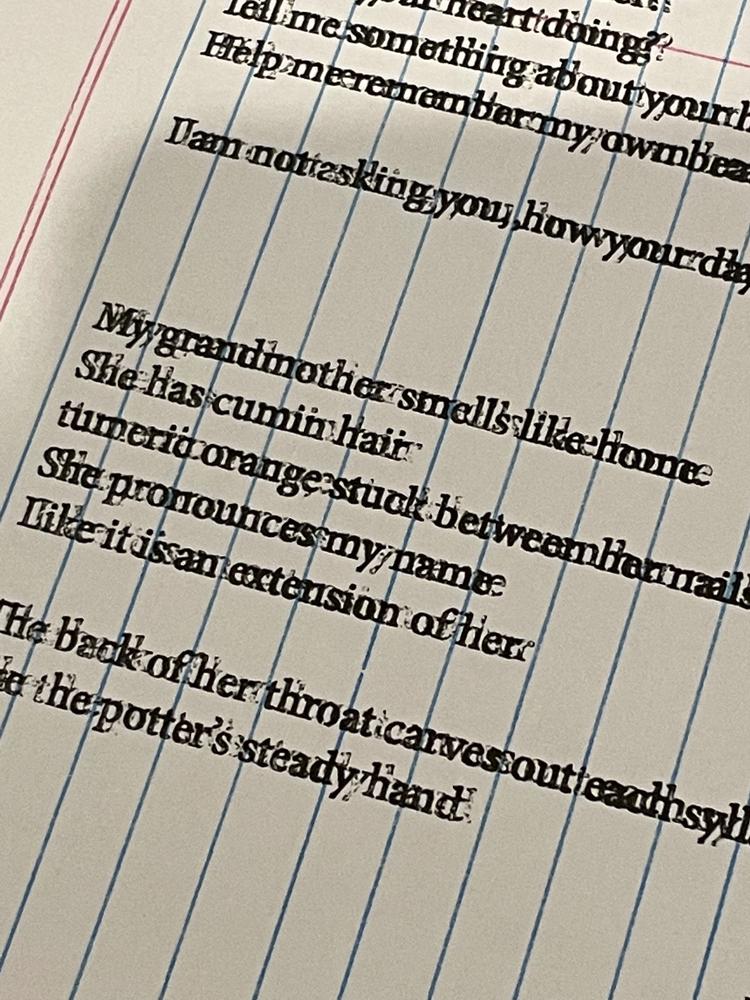 heart doing?
Tell me something about your
Help me remember my own
I am not asking you, how your
My grandmother smells like home
She has cumin hair
tumeric orange stuck between her nails
She pronounces my name
Like it is an extension of her
The back of her throat carves out each
the potter's steady hand